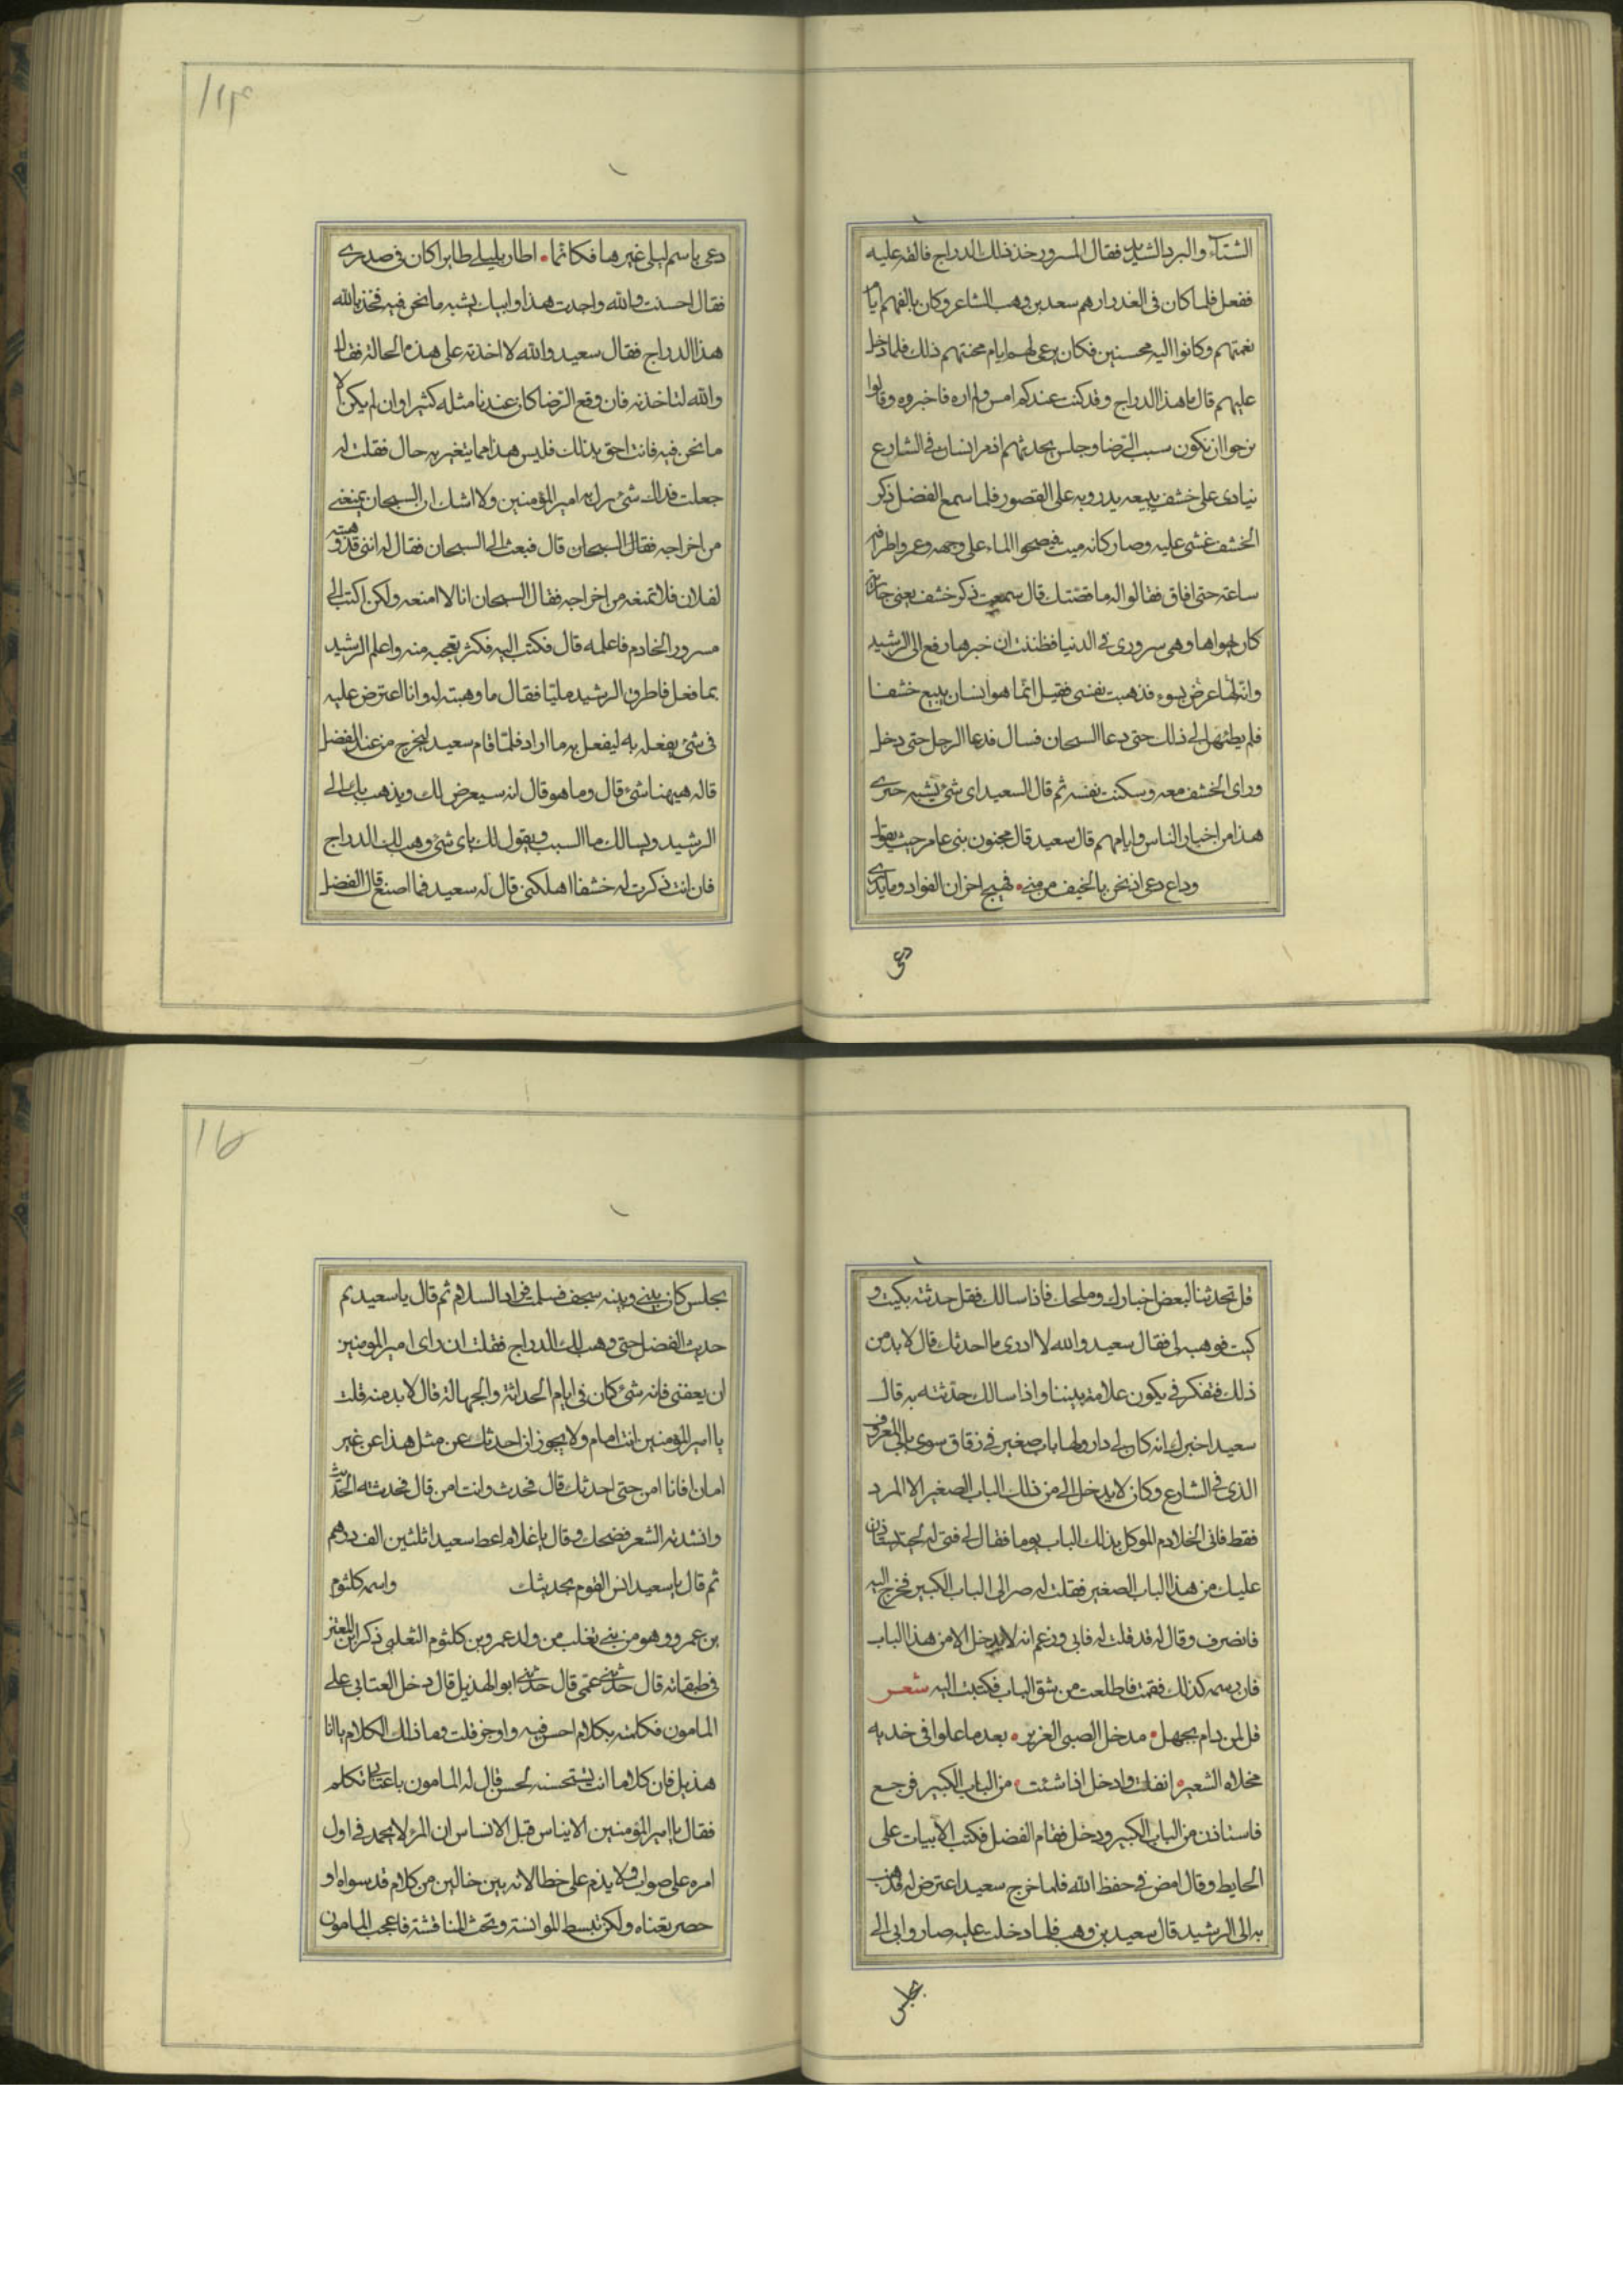 الشتآء والبرد الشديد فقال المسرور خذ ذلك الدراج فالقه عليه
ففعل فلما كان فى الغد زارهم سعد بن وهب الشاعر وكان يالفهم ايام
نعمتهم وكانوا اليه محسنين فكان يرعى لهم ايام محنتهم ذلك فلما دخل
عليهم قال ما هذا الدراج وقد كنت عندكم امس ولم اره فاخبروه وقالوا
نرجوا ان تكون سبب الرضا وجلس يحدثهم اذ مر انسان فى الشارع
ينادى على خشف يبيعه يدور به على القصور فلما سمع الفضل ذكر
الخشف غشى عليه وصار كانه ميت فيصحوا الماء على وجهه وغمر واطرافه
ساعة حتى افاق فقالوا له ما قصتك قال سمعت ذكر خشف يعنى جارية
كان يهواها وهى سرورى فى الدنيا فظننت ان خبرها رفع الى الرشيد
وانه لها عرض بسوء فذهبت نفسى فقيل انما هو انسان يبيع خشفا
فلم يطمئن الى ذلك حتى دعا السجان فسال فدعا الرجل حتى دخل
وراى الخشف معه وسكنت نفسه ثم قال السعيد اى شئ يشبه خبرى
هذا من اخبار الناس وايامهم قال سعيد قال مجنون بنى عامر حيث يقول
وداع دعى اذ نحن بالخيف من منى فهيج احزان الفواد وما يدرى
دعى
١١٤
دعى باسم ليلى غيرها فكانما اطار بليلى طايرا كان فى صدرى
فقال احسنت والله واجدت هذا وابيك يشبه ما نحن فيه فخذ بالله
هذا الدراج فقال سعيد والله لا اخذته على هذه الحالة فقال
والله لتاخذنه فان وقع الرضا كان عندنا مثله كثيرا وان لم يكن الا
ما نحن فيه فانت احق بذلك فليس هذا مما يتغير به حال فقلت له
جعلت فداك شئ بر به امير المؤمنين ولا اشك ان السجان يمنعنى
من اخراجه فقال السجان قال فبعث الى السجان فقال له اننى قد وهبته
لفلان فلا تمنعه من اخراجه فقال السجان انا لا امنعه ولكن اكتب الى
مسرور الخادم فاعلمه قال فكتب اليه فكثر تعجبه منه واعلم الرشيد
بما فعل فاطرق الرشيد مليا فقال ما وهبته له وانا اعترض عليه
فى شئ يفعله به ليفعل به ما اراد فلما قام سعيد ليخرج من عند الفضل
قاله هيهنا شئ قال وما هو قال انه سيعرض لك ويذهب بك الى
الرشيد ويسالك ما السبب ويقول لك باى شئ وهب لك الدراج
فان انت ذكرت له خشفا اهلكنى قال له سعيد فما اصنع قال الفضل
قل تحدثنا لبعض اخبارك وملحك فاذا سالك فقل حدثته بكيت و
كيت فوهبه لى فقال سعيد والله لا ادرى ما احدثك قال لا بد من
ذلك فتفكر فى يكون علامة بيننا واذا سالك حدثته به قال
سعيد اخبرك انه كان لى دار ولها باب صغير فى زقاق سوى بابى المعروف
الذى فى الشارع وكان لا يدخل الى من ذلك الباب الصغير الا المرد
فقط فاتى الخادم الموكل بذلك الباب يوما فقال لى فتى له لحية يستاذن
عليك من هذا الباب الصغير فقلت له صر الى الباب الكبير فخرج اليه
فانصرف وقال له قد قلت له فابى وزعم انه لا يدخل الا من هذا الباب
فان رسمه كذلك فقمت فاطلعت من شق الباب فكتبت اليه شعر
قل لمن رام بجهل مدخل الصبى الغرير بعد ما علوا فى خديه
مخلاه الشعير انفلت وادخل اذا شئت من الباب الكبير فرجع
فاستاذن من الباب الكبير ودخل فقام الفضل فكتب الابيات على
الحايط وقال امض فى حفظ الله فلما خرج سعيد اعترض له فذهب
به الى الرشيد قال سعيد بن وهب فلما دخلت عليه صاروا بى الى
مجلس
١١٥
مجلس كان بينى وبينه سجف فسلمت فرد السلام ثم قال يا سعيد بم
حديث الفضل حتى وهب لك الدراج فقلت ان راى امير المومنين
ان يعفنى فانه شئ كان فى ايام الحداثة والجهالة قال لا بد منه قلت
يا امير المؤمنين انت امام ولا يجوز ان احدثك عن مثل هذا عن غير
امان فانا امن حتى احدثك قال فحدث وانت امن قال فحدثته الحديث
وانشدته الشعر فضحك وقال يا غلام اعط سعيدا ثلثين الف درهم
ثم قال يا سعيد انس القوم بحديثك واسمه كلثوم
بن عمرو وهو من بنى تغلب من ولد عمرو بن كلثوم الثعلبى ذكر ابن المعتز
فى طبقاته قال حدثنى عمى قال حدثنى ابو الهذيل قال دخل العتابى على
المامون فكلمه بكلام احسن فيه واوجز قلت وما ذلك الكلام يا ابا
هذيل فان كلاما انت تستحسنه لحسن قال له المامون يا عتابى تكلم
فقال يا امير المؤمنين الايناس قبل الانساس ان المرء لا يحمد فى اول
امره على صواب ولا يذم على خطا لانه بين خالين من كلام قد سواه او
حصر بعناه ولكن تبسط للموانسة وتحث المنافشة فاعجب المامون